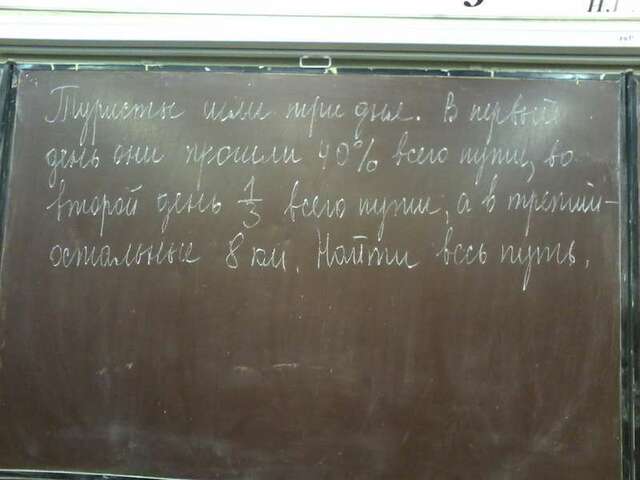 Туристы шли три дня. В первый
день они прошли 40% всего пути, во
второй день 1/3 всего пути, а в третий-
остальные 8 км. Найти весь путь.